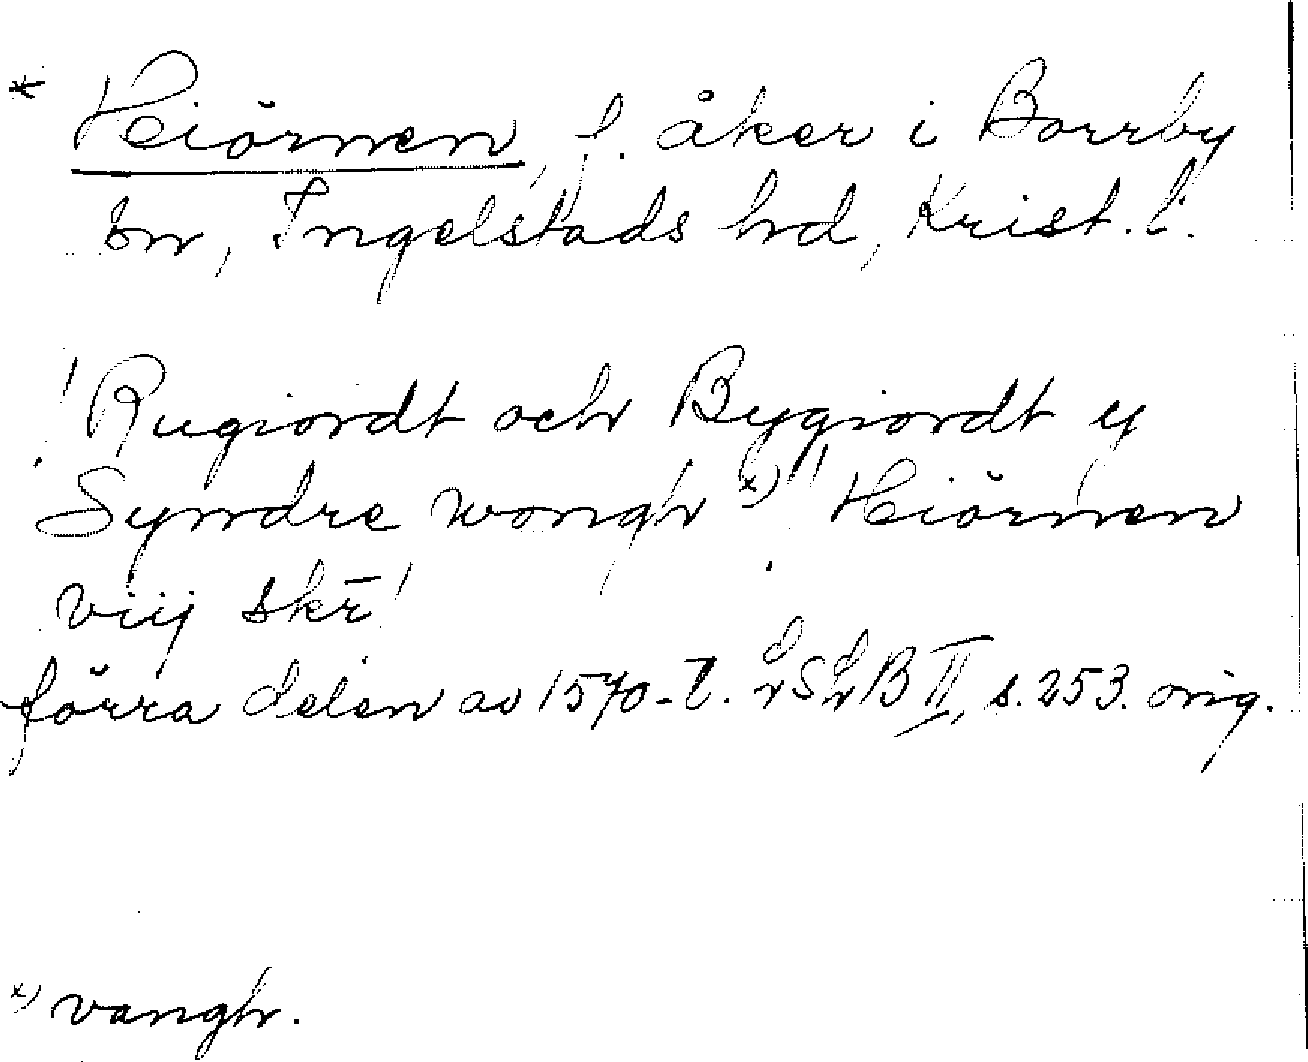 * Heiörnen, f. åker i Borrby
sn, Ingelstads hrd, Krist. l.
! Rugiordt och Bygiordt y
Syndre wongh x) ! Heiörnen
viij skr̄ !
förra delen av 1570-t. LSLB II, s. 253. orig.
x) vangh.